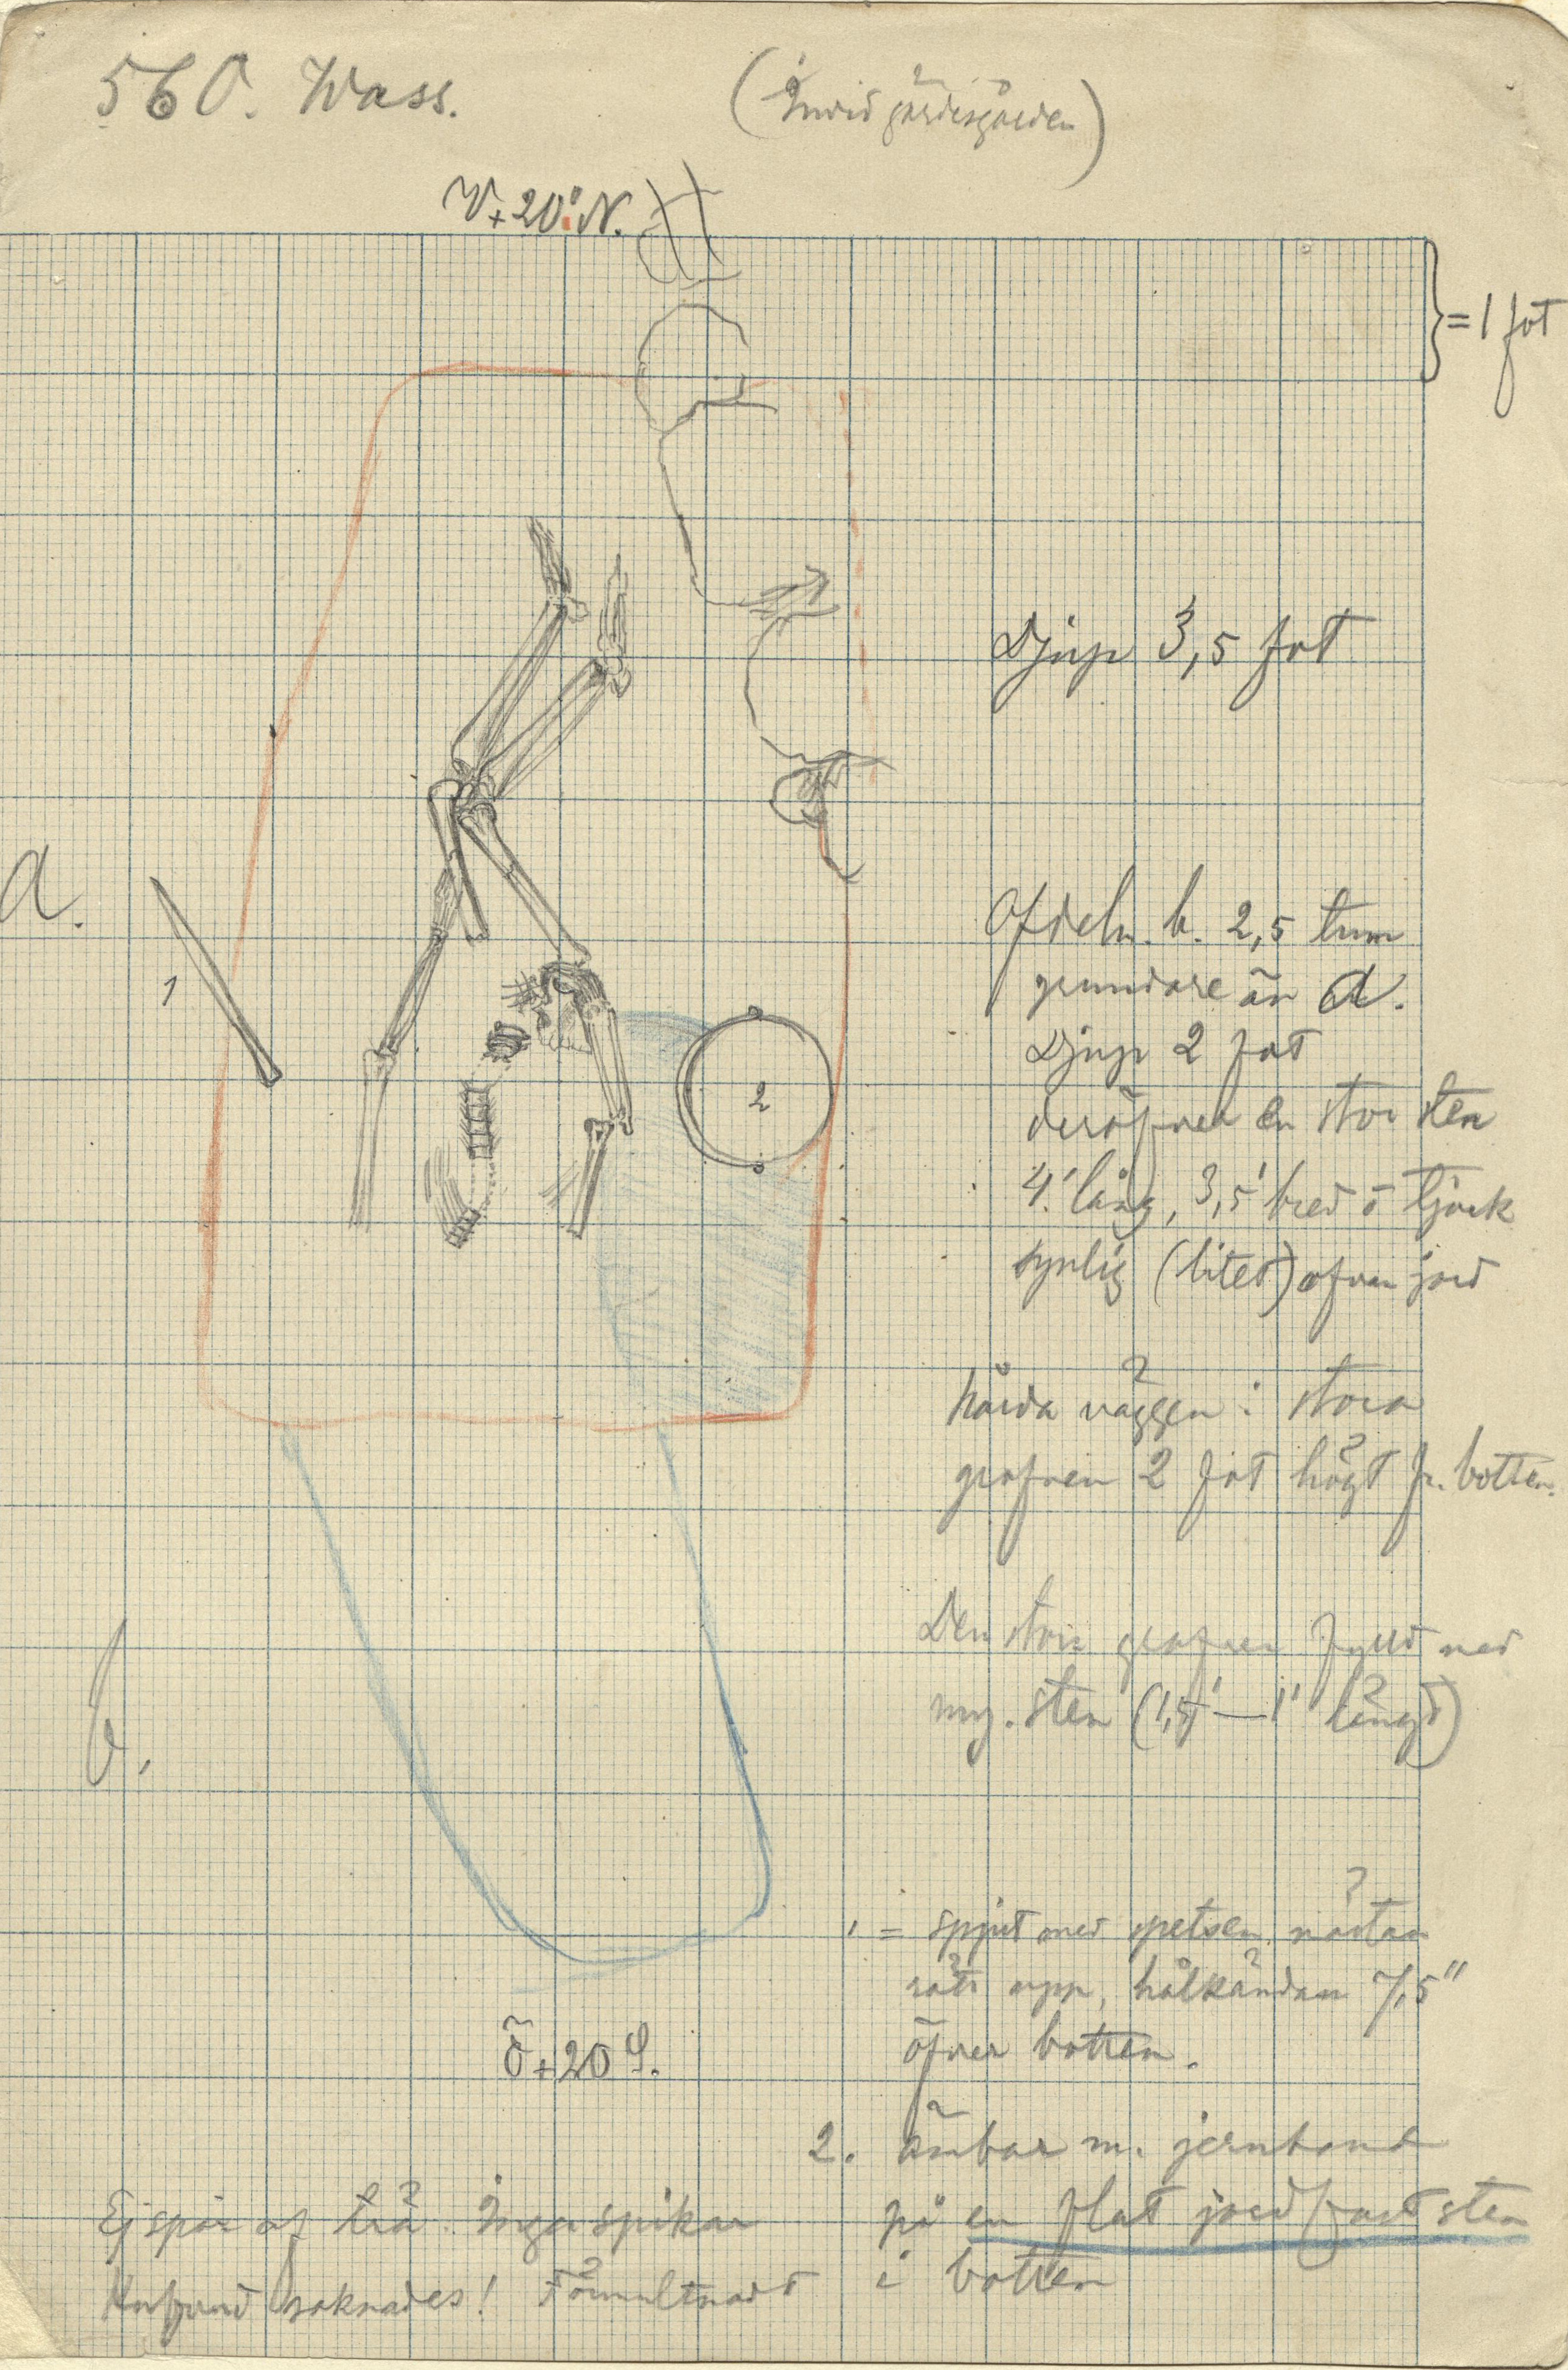 560. Wass.
(Invid gärdesgården)
V+20° N.
= 1 fot
Djup 3,5 fot
a.
1
2
Afdeln. b. 2,5 tum
grundare än a.
Djup 2 fot
deröfver en stor sten
4' lång, 3,5' bred o tjock
synlig (litet) ofvan jord
hårda väggen i stora
grafven 2 fot högt fr. botten.
Den stora grafven fylld med
myc. sten (1,5' — 1' längd)
b.
1 = spjut med spetsen nästan
rätt upp, hålkändan 7,5"
öfver botten.
Ö+20 S.
2. ämbar m. jernband
på en flat jordfast sten
i botten
Ej spår af trä. Inga spikar
Hufvud saknades! Förmultnadt